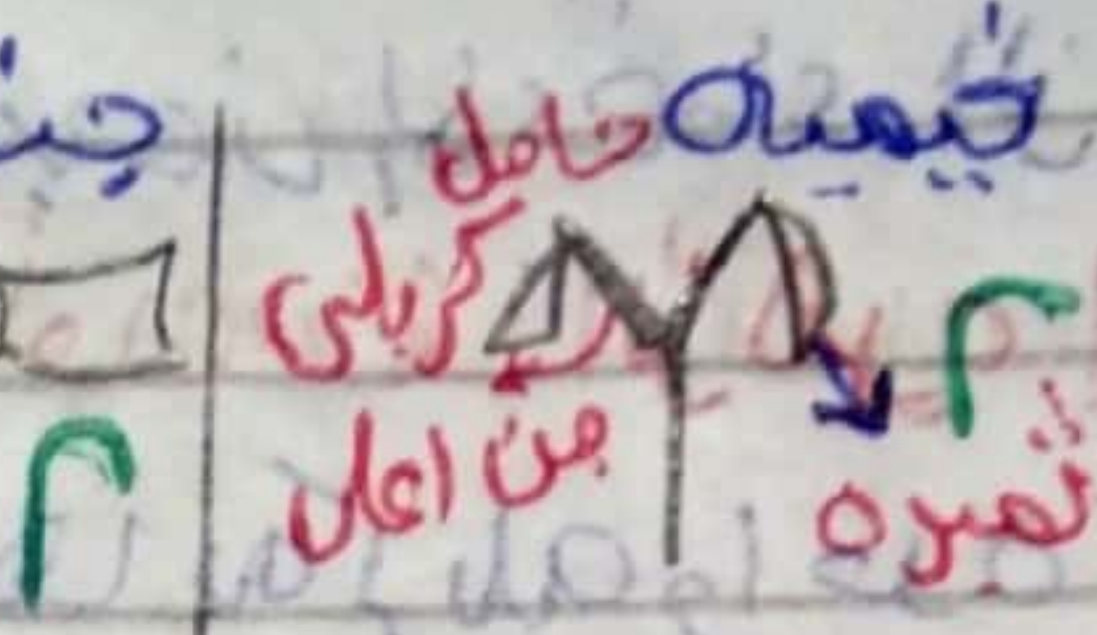 خيمية حامل
كربلي
من اعلى
٢
ثميرة
٢